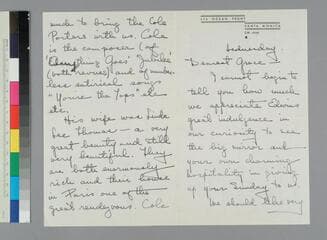 OCEAN FRONT
SANTA MONICA
Wednesday
Dearest Grace –
I cannot begin to
tell you how much
we appreciate Edwins
great indulgence in
our curiosity to see
the big mirror and
your own charming
hospitality in giving
up your Sunday to us.
We should like very
much to bring the Cole
Porters with us. Cole
is the composer (of
"Anything Goes" "Jubilee"
(both revues) and of number-
less satirical songs
"You're the Tops" etc
etc.
His wife was Linda
Lee Thomas – a very
great beauty and still
very beautiful. They
are both enormously
rich and their house
in Paris one of the
great rendezvous. Cole